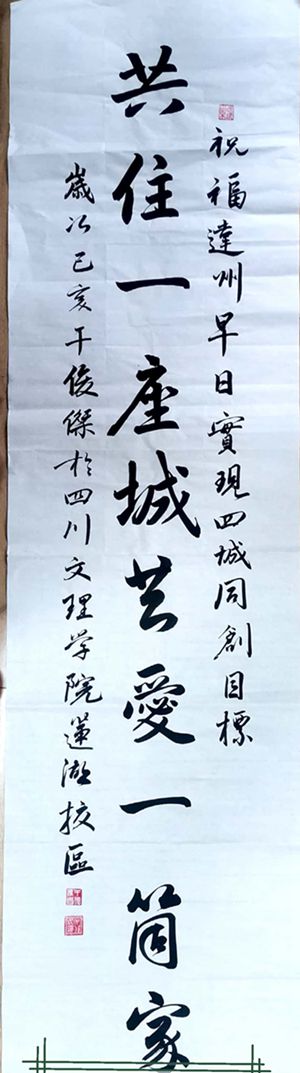 祝福達州早日實現四城同創目標
共住一座城共愛一箇家
歲次己亥于俊傑於四川文理学院蓮湖校區